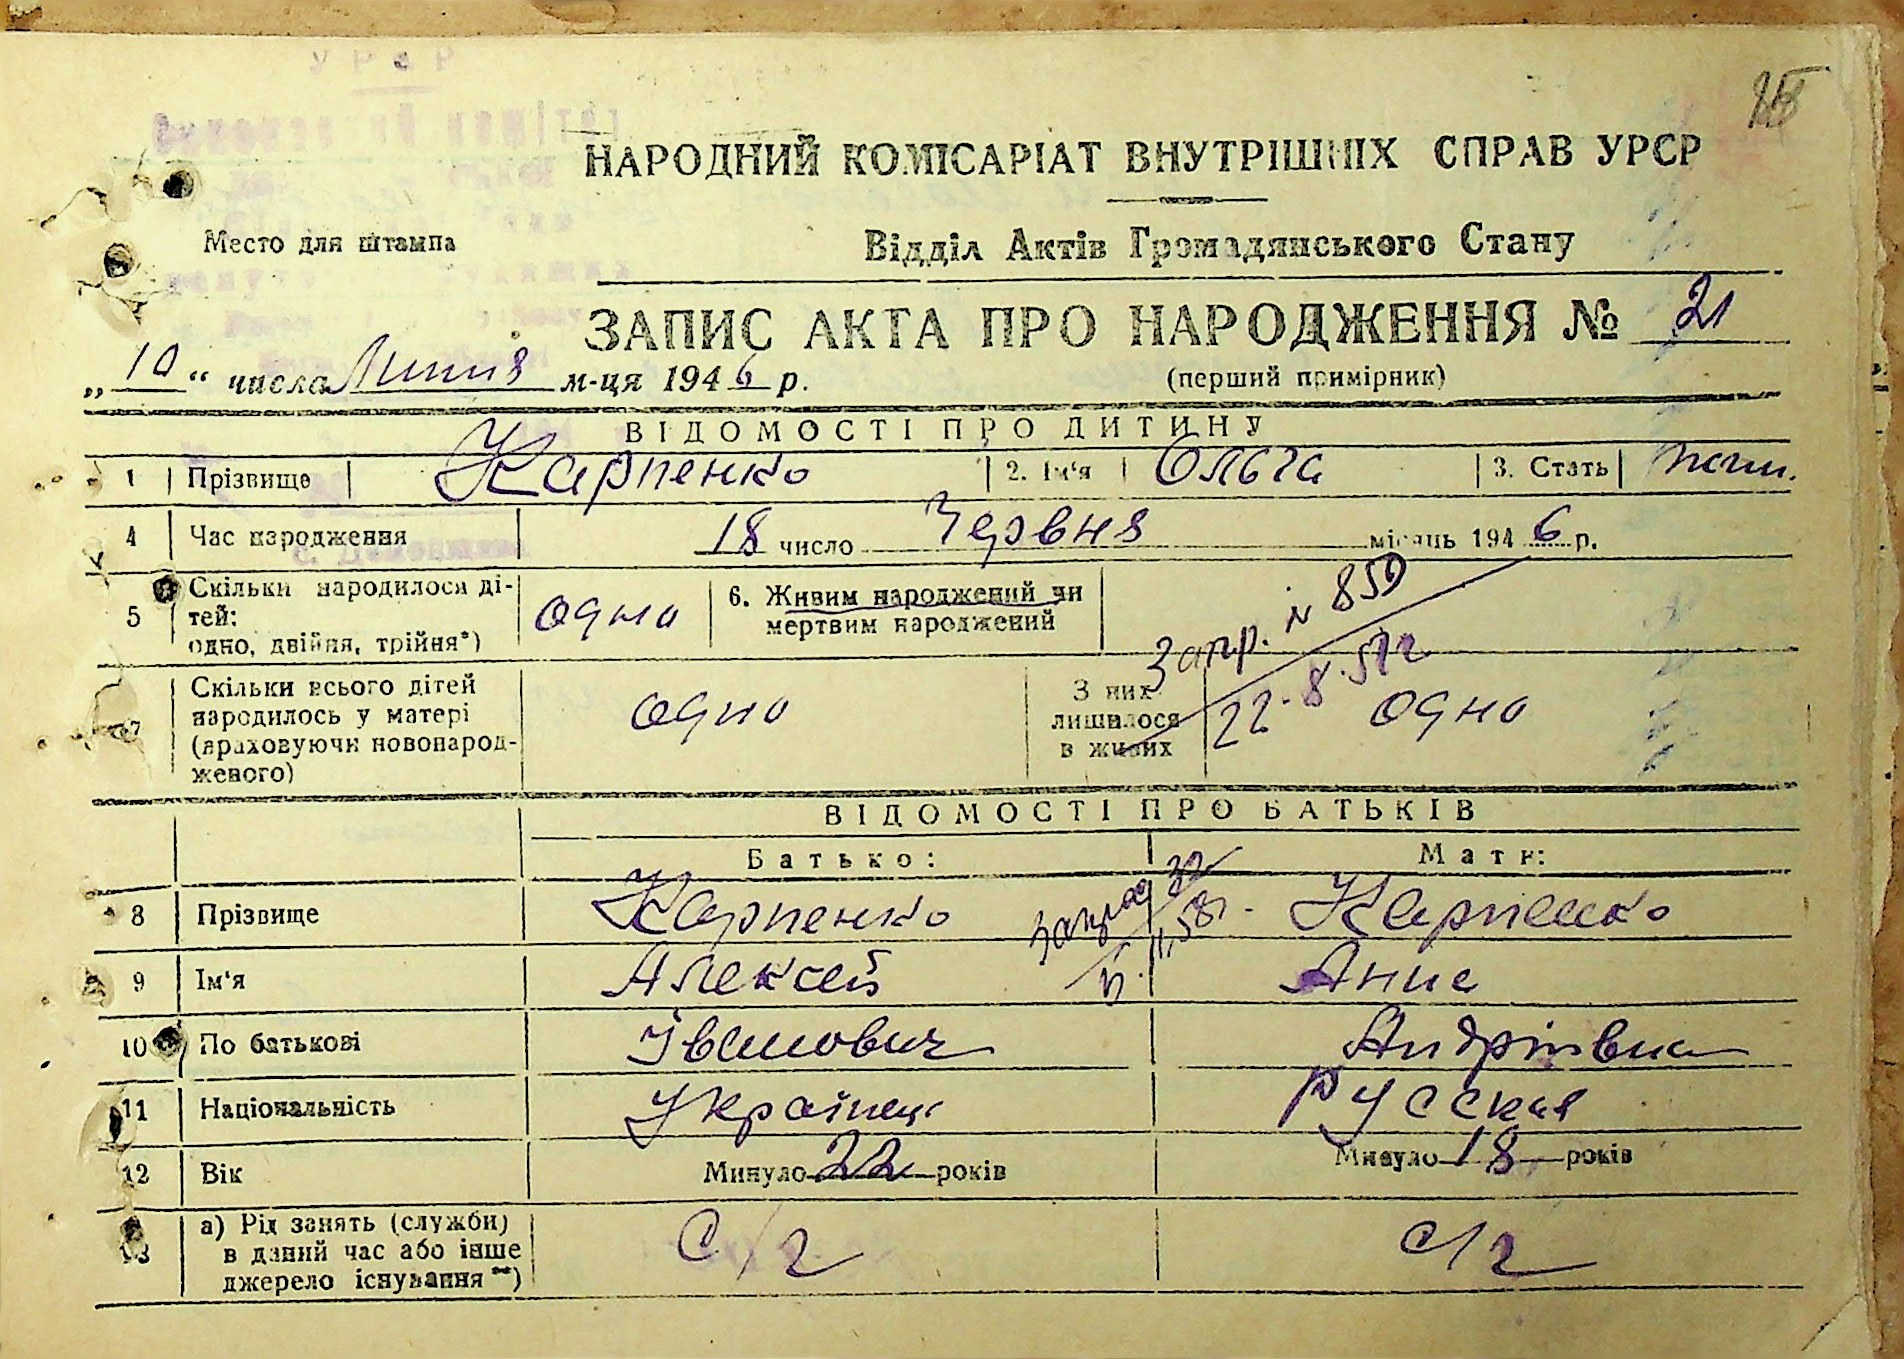 НАРОДНИЙ КОМІСАРІАТ ВНУТРІШНІХ СПРАВ УРСР
Место для штампа
Відділ Актів Громадянського Стану
ЗАПИС АКТА ПРО НАРОДЖЕННЯ № 21
„10“ числа Липня м-ця 1946 р.
(перший примірник)
ВІДОМОСТІ ПРО ДИТИНУ
1 Прізвище Карпенко 2. Ім'я Ольга 3. Стать
4 Час народження 18 число Червня місяць 1946 р.
5 Скільки народилося ді-
тей:
одно, двійня, трійня*) одно
6. Живим народжений чи
мертвим народжений
Запр. № 850
22.8.57г
7 Скільки всього дітей
народилось у матері
(враховуючи новонарод-
женого) одно
З них
лишилося
в живих одно
ВІДОМОСТІ ПРО БАТЬКІВ
Батько: Мати:
8 Прізвище Карпенко Карпенко
9 Ім'я Алексей Анна
10 По батькові Іванович Андріївна
11 Національність Українець Русская
12 Вік Минуло 22 років Минуло 18 років
13 а) Рід занять (служби)
в даний час або інше
джерело існування **) с/г с/г